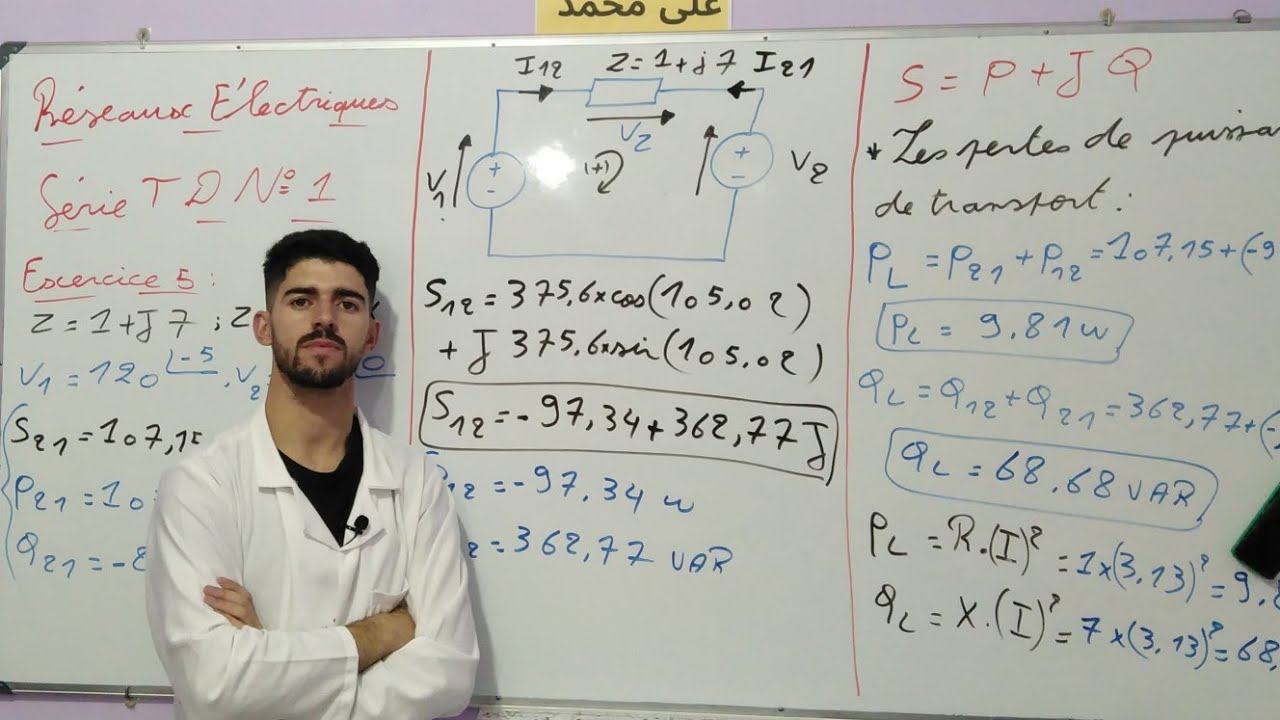 على محمد
Réseaux Électriques
Série TD N° 1
Exercice 5 :
Z = 1 + J 7 ; Z
V1 = 120 ∠-5 , V2 = 0
S21 = 107,15
P21 = 10
Q21 = -2
I12 Z = 1 + j 7 I21
VZ
V1 + - (+) + - V2
S12 = 375,6 x cos(105,02)
+ J 375,6 x sin(105,02)
S12 = -97,34 + 362,77 J
P12 = -97,34 w
= 362,77 VAR
S = P + J Q
* Les pertes de puissa
de transport :
PL = P21 + P12 = 107,15 + (-9
PL = 9.81 w
QL = Q12 + Q21 = 362,77 + (-
QL = 68.68 VAR
PL = R.(I)² = 1 x (3,13)² = 9.8
QL = X.(I)² = 7 x (3,13)² = 68,